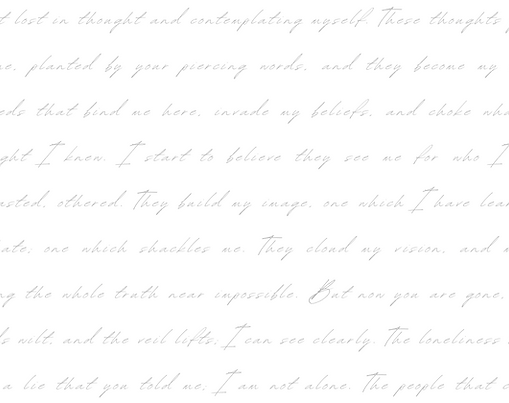 t lost in thought and contemplating myself. These thoughts
me, planted by your piercing words, and they become my
eds that bind me here, invade my beliefs, and choke wh
ght I knew. I start to believe they see me for who I
asted, othered. They build my image, one which I have lear
ate; one which shackles me. They cloud my vision, and
ng the whole truth near impossible. But now you are gone,
s wilt, and the veil lifts; I can see clearly. The loneliness
a lie that you told me; I am not alone. The people that